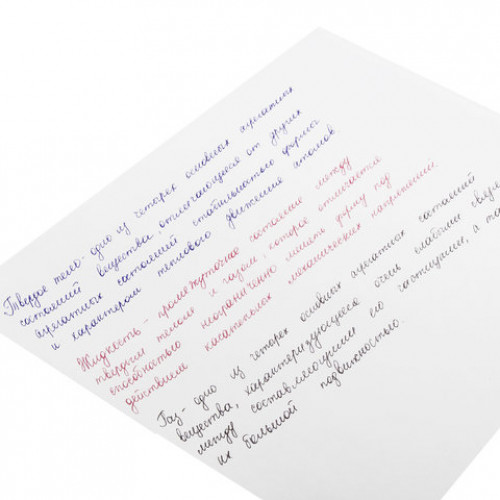 Твердое тело- одно из четырех основных агрегатных
состояний вещества отличающееся от других
агрегатных состояний стабильностью формы
и характером теплового движения атомов
Жидкость - промежуточное состояние между
твердым телом и газом, которое отличается
способностью неограниченно менять форму под
действием касательных механических напряжений.
Газ - одно из четырех основных агрегатных состояний
вещества, характеризующееся очень слабыми
между составляющими его частицами, а та
их большой подвижностью.